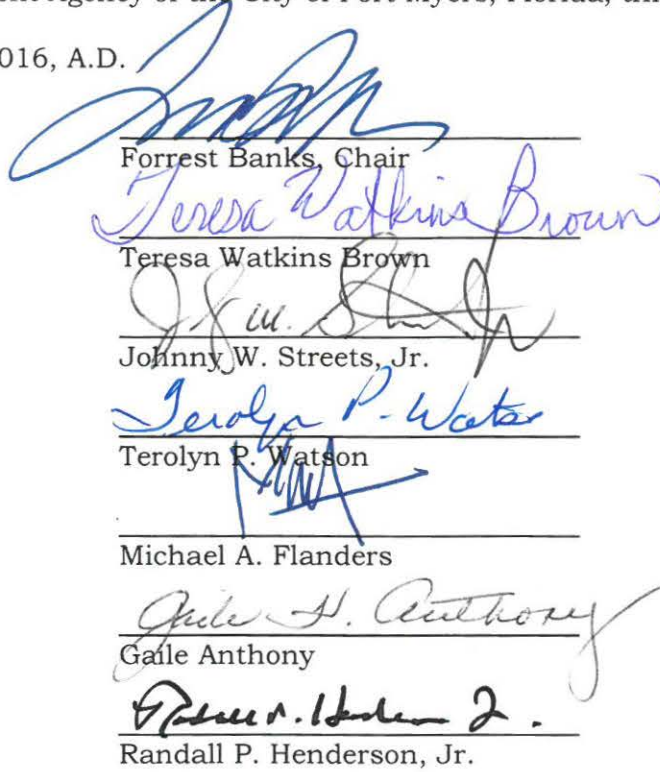 Agency of the City of Fort Myers, Florida,
016, A.D.
Forrest Banks, Chair
Teresa Watkins Brown
Teresa Watkins Brown
Johnny W. Streets, Jr.
Terolyn P. Watson
Terolyn P. Watson
Michael A. Flanders
Gaile H. Anthony
Gaile Anthony
Randall P. Henderson, Jr.